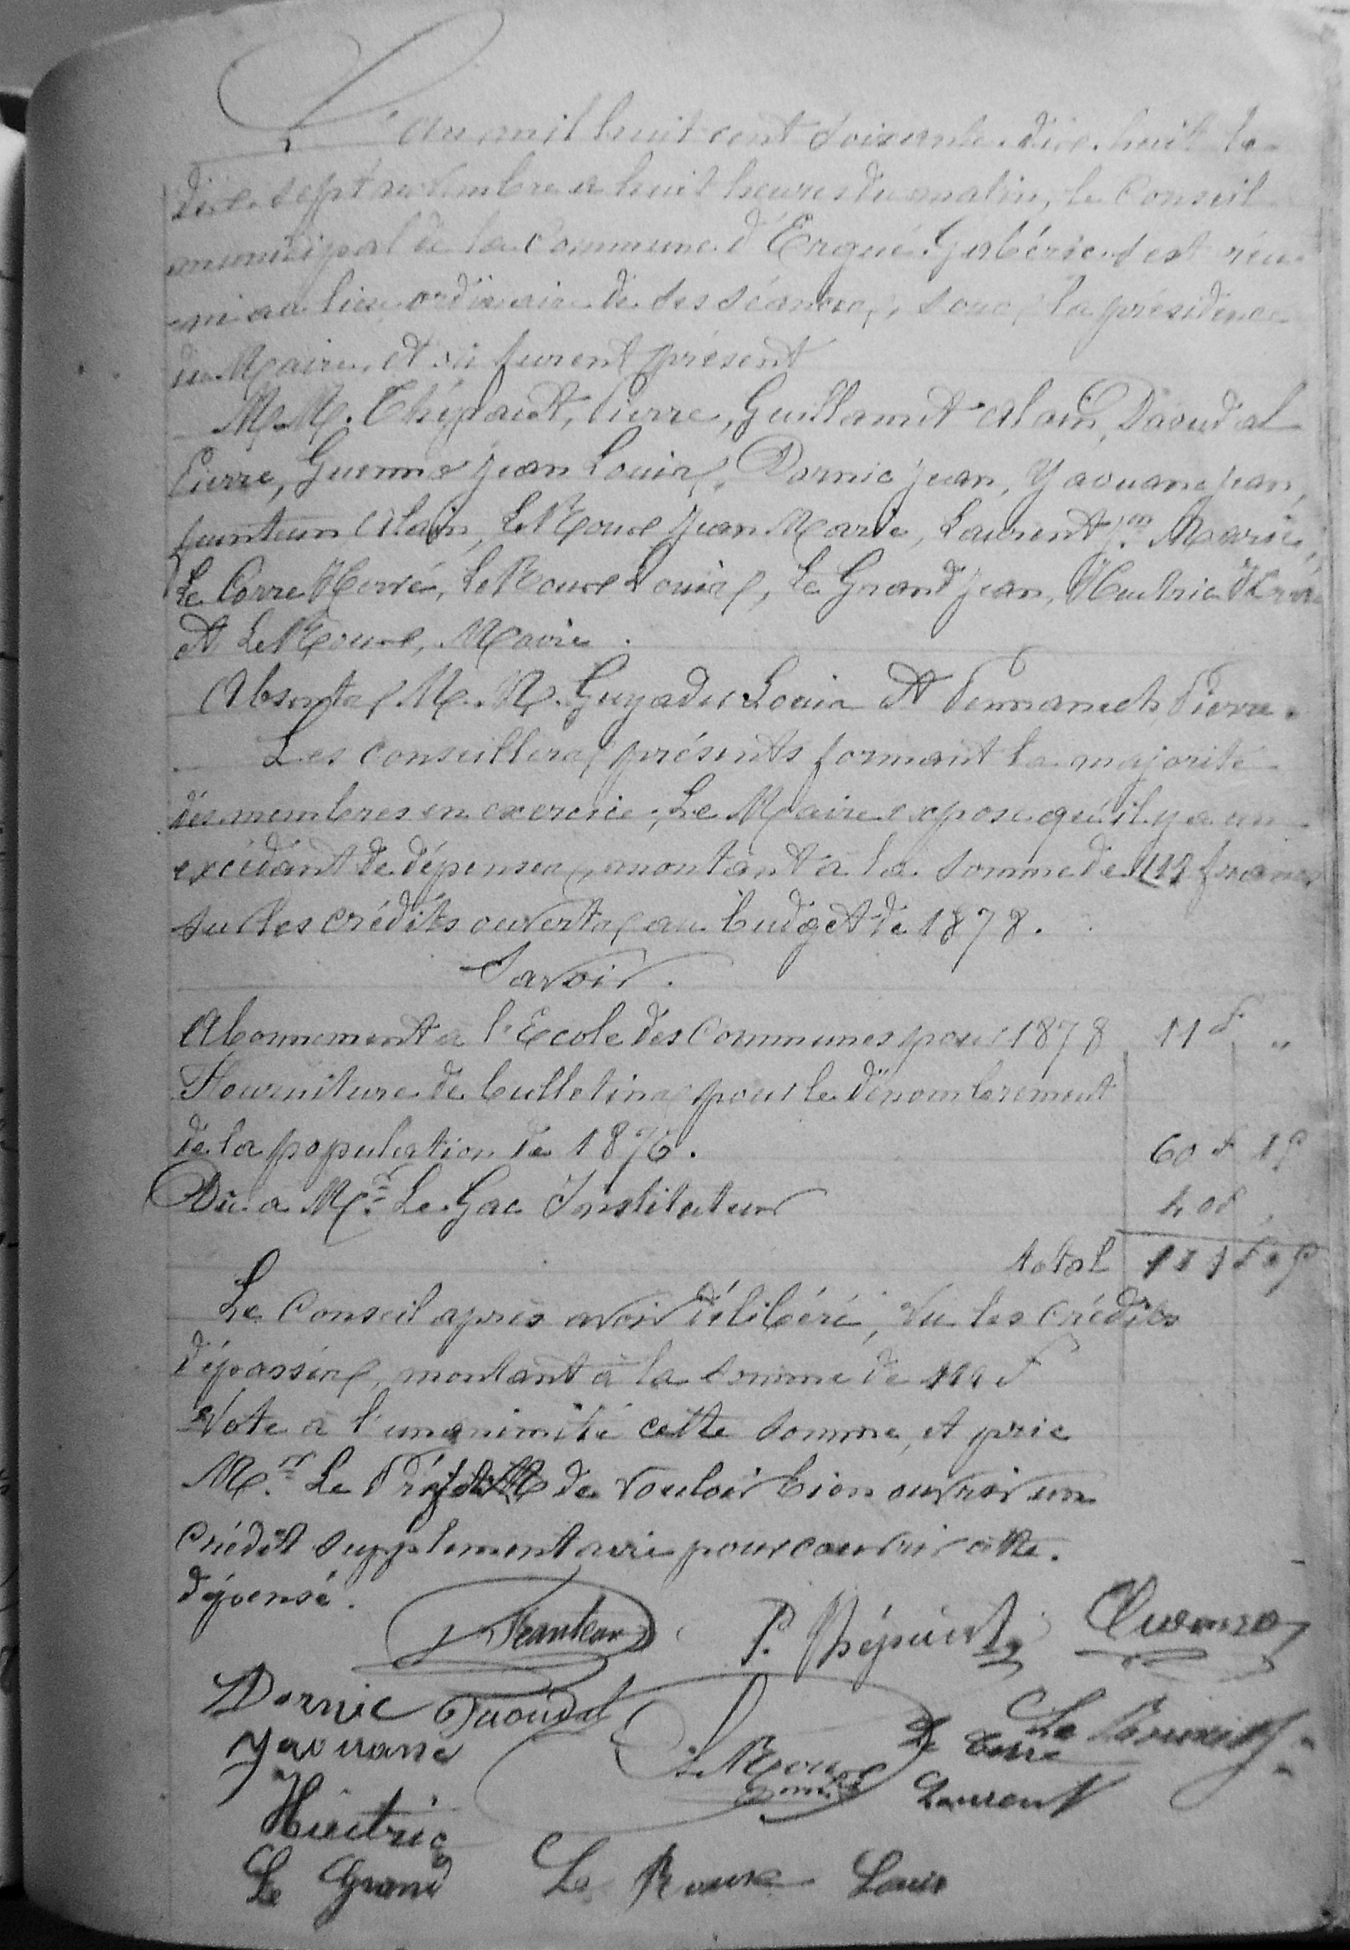 L'an mil huit cent soixante dix huit le
dix sept novembre a huit heures du matin, le Conseil
municipal de la Commune d'Ergué-Gabéric s'est réu-
ni au lieu ordinaire de ses séances, sous la présidence
du Maire, et où furent présent
M.M. Thépaut, Pierre, Guillamet Alain, Daoudal
Pierre, Guenno Jean Louis, Dornic Jean, Yaouanc Jean,
feunteun Alain, Le Roux Jean Marie, Laurent Jn Marie,
Le Corre Hervé, Le Roux Louis, Le Grand Jean, Huitric Hervé
et Le Roux, Maire.
Absents M.M. Guyader Louis et Pennanech Pierre.
Les conseillers présents formant la majorité
des membres en exercice, Le Maire expose qu'il y a un
excédant de dépenses, montant à la somme de francs
sur les crédits ouverts au budget de 1878.
Savoir.
Abonnement a l'Ecole des Communes pour 1878 11 f „
Fourniture de bulletins pour le dénombrement
de la population de 1876. 60 f
Dû a Mr. Le Gac Instituteur 40 f
total
Le Conseil après avoir délibéré, Vu les crédits
dépassés, montant à la somme de
Vote à l'unanimité cette somme, et prie
Mr. Le Préfet de vouloir bien ouvrir un
crédit supplémentaire pour couvrir cette
dépense.
Feunteun P. Thépaut Guenno
Dornic Daoudal
Yaouanc Le Roux Le Corre
Huitric Laurent
Le Grand Le Roux Louis